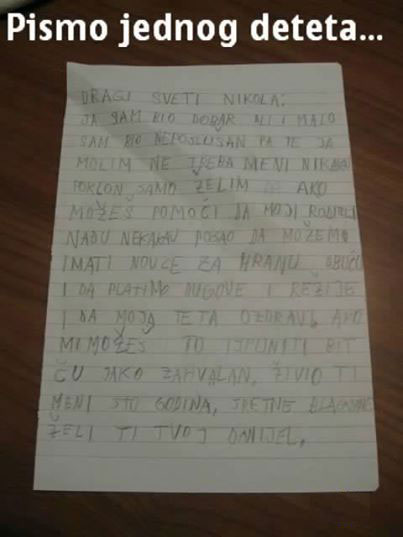 Pismo jednog deteta...
DRAGI SVETI NIKOLA:
JA SAM BIO DOBAR ALI I MALO
SAM BIO NEPOSLUSAN PA TE JA
MOLIM NE TREBA MENI NIKAKAV
POKLON SAMO ŽELIM AKO
MOŽEŠ POMOĆI DA MOJI RODITELJI
NAĐU NEKAKAV POSAO DA MOŽEMO
IMATI NOVCE ZA HRANU, OBUĆU
I DA PLATIMO DUGOVE I REŽIJE
I DA MOJA TETA OZDRAVI, AKO
MI MOŽEŠ TO ISPUNITI BIT
ĆU JAKO ZAHVALAN, ŽIVIO TI
MENI STO GODINA, SRETNE BLAGDANE
ŽELI TI TVOJ DANIJEL.